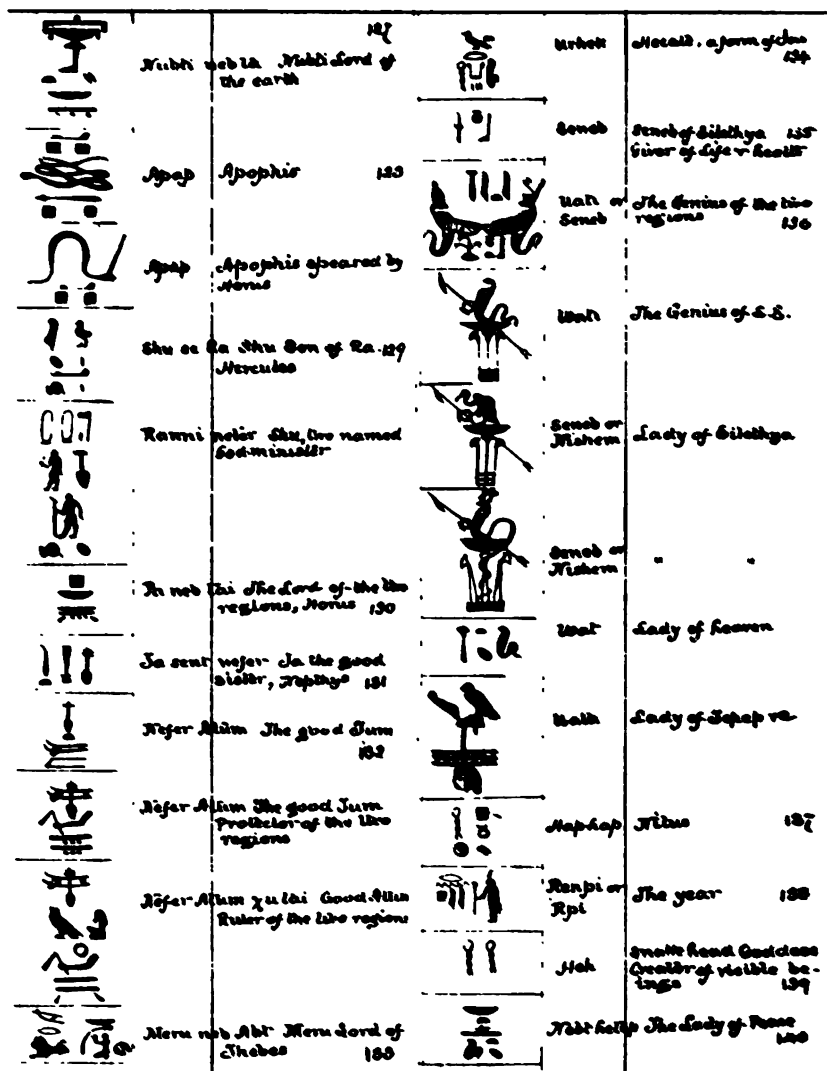 127
Nubti neb ta Nubti Lord of
the earth
Apap Apophis 128
Apap Apophis speared by
Horus
Shu se Ra Shu Son of Ra 129
Hercules
Ranni neter Shu, two named
God minister
neb tai The Lord of the two
regions, Horus 130
Ia sent nefer Ia the good
sister, Nepthys 131
Nefer Atum The good Tum
132
Nefer Atum The good Tum
Protector of the two
regions
Nefer Atum χu tai Good Atum
Ruler of the two regions
Meru neb Abt Meru Lord of
Thebes 133
Urhek Herald, a form of
134
Seneb Seneb of Eilethya 135
Giver of Life & health
Uati or The Genius of the two
Seneb regions 136
Uati The Genius of
Seneb or Lady of Eilethya
Nishem
Seneb or " "
Nishem
Uat Lady of heaven
Uath Lady of
Haphap Nilus 137
Renpi or The year 138
Rpi
Heh Snake head Goddess
Creator of visible be-
ings 139
Nebt hotep The Lady of Peace
140